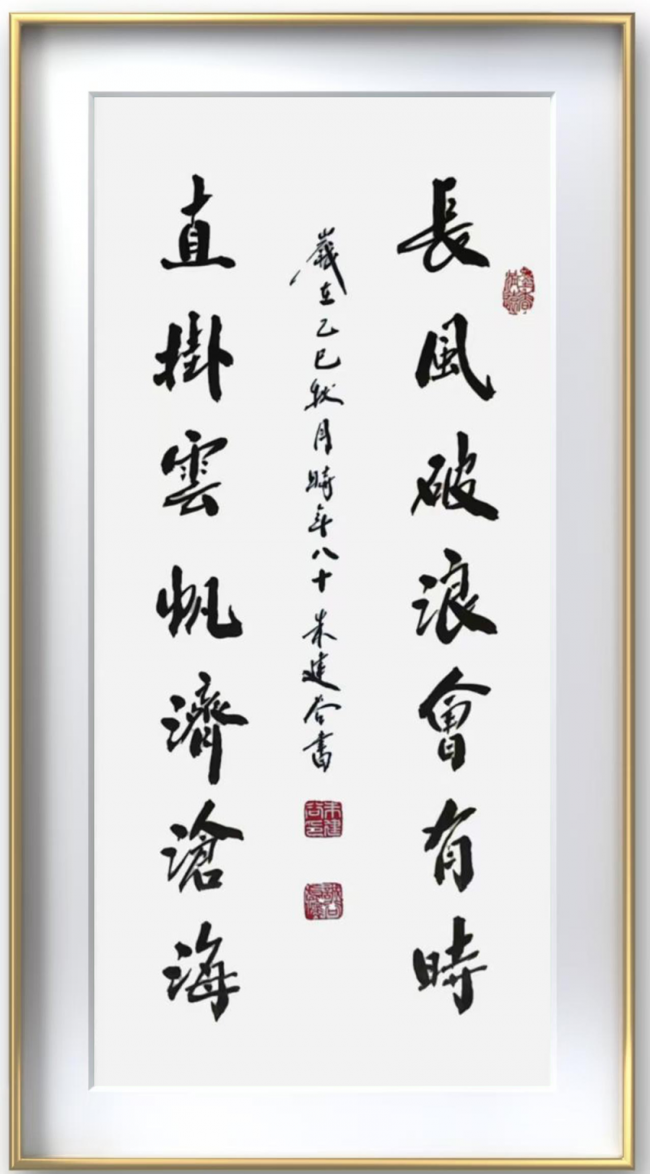 長風破浪會有時
歲在乙巳秋月時年八十朱建谷書
直掛雲帆濟滄海